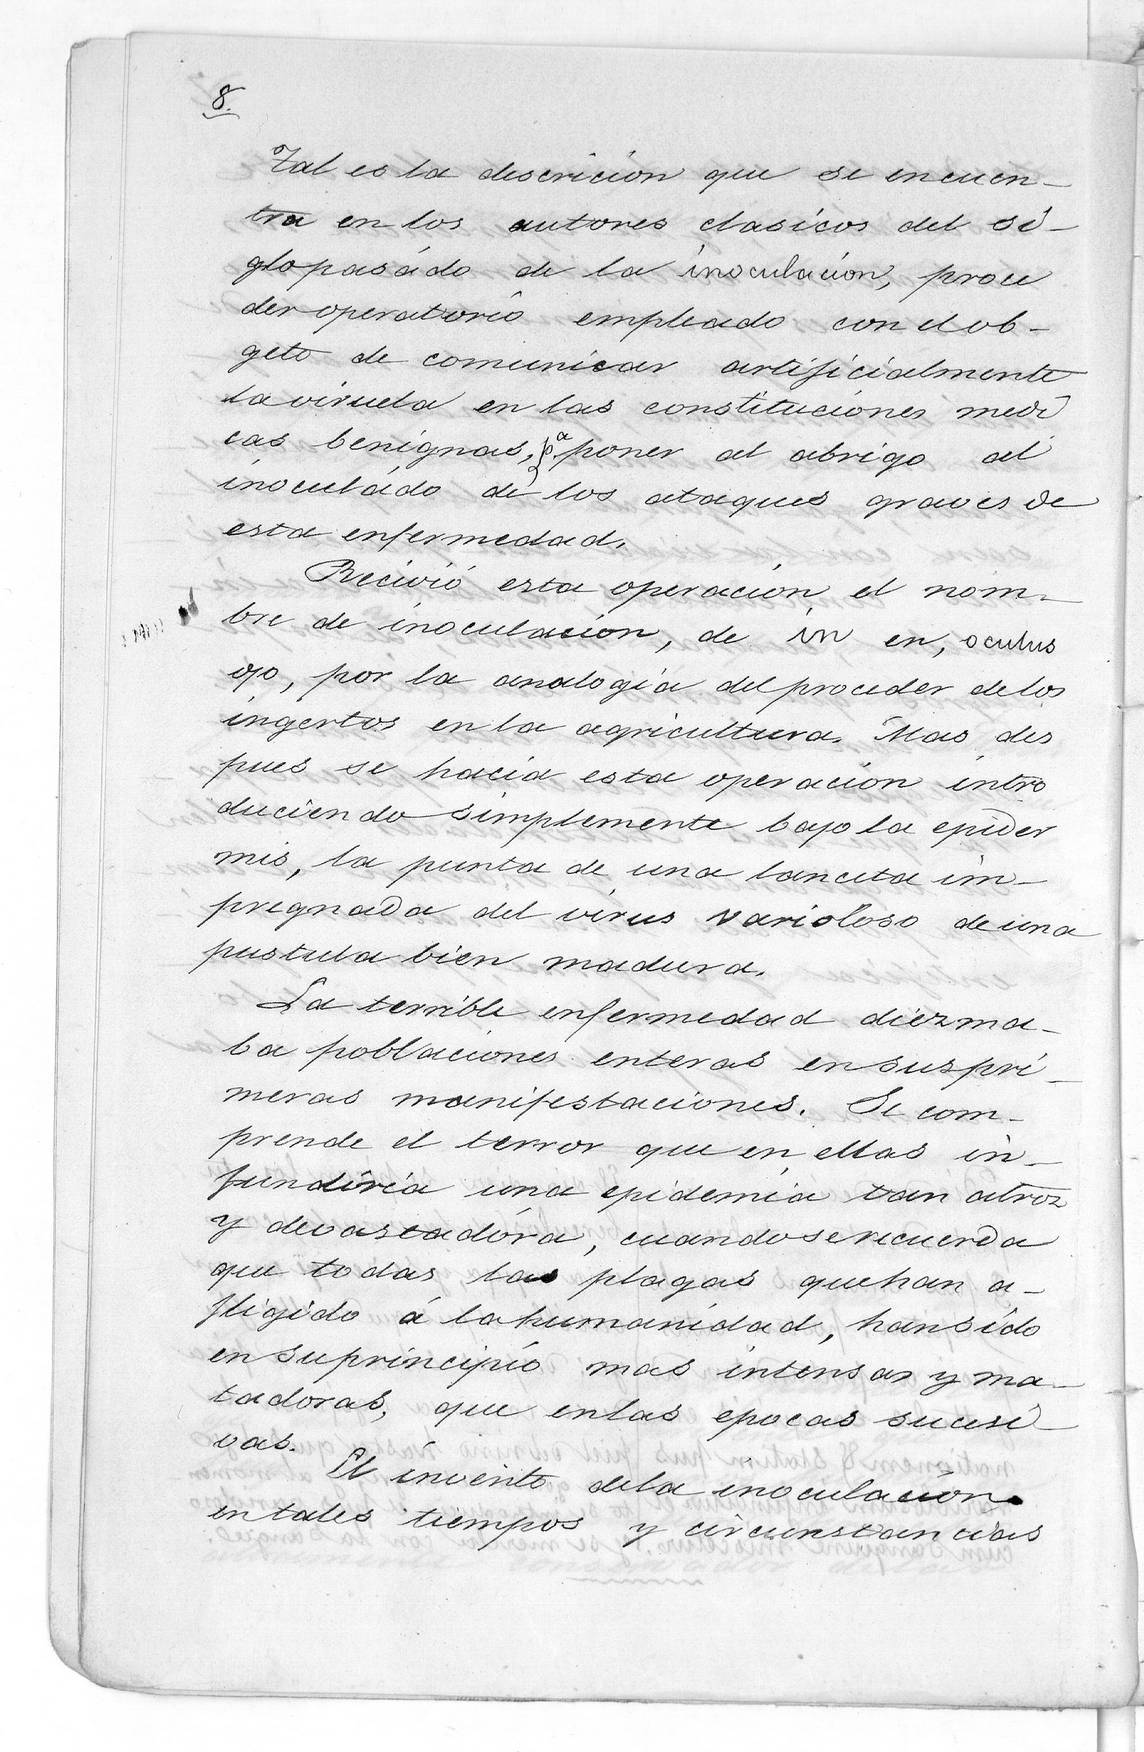 8.
Tal es la descricion que se encuen-
tra en los autores clasicos del si-
glo pasádo de la inoculacion, proce
der operatorio empleado con el ob-
geto de comunicar artificialmente
la viruela en las constituciones medi
cas benignas, pª poner al abrigo al
inoculádo de los ataques graves de
esta enfermedad.
Recivió esta operacion el nom-
bre de inoculacion, de in en, oculus
ojo, por la analogia del proceder de los
ingertos en la agricultura. Mas des
pues se hacia esta operacion intro
duciendo simplemente bajo la epider
mis, la punta de una lanceta im-
pregnada del virus varioloso de una
pustula bien madura.
La terrible enfermedad diezma-
ba poblaciones enteras en sus pri-
meras manifestaciones. Se com-
prende el terror que en ellas in-
fundiria una epidemia tan atroz
y devastadóra, cuando se recuerda
que todas las plagas que han a-
fligido á la humanidad, han sido
en su principio mas intensas y ma-
tadoras, que en las epocas sucesi-
vas.
El invento de la inoculacion
en tales tiempos y circunstancias